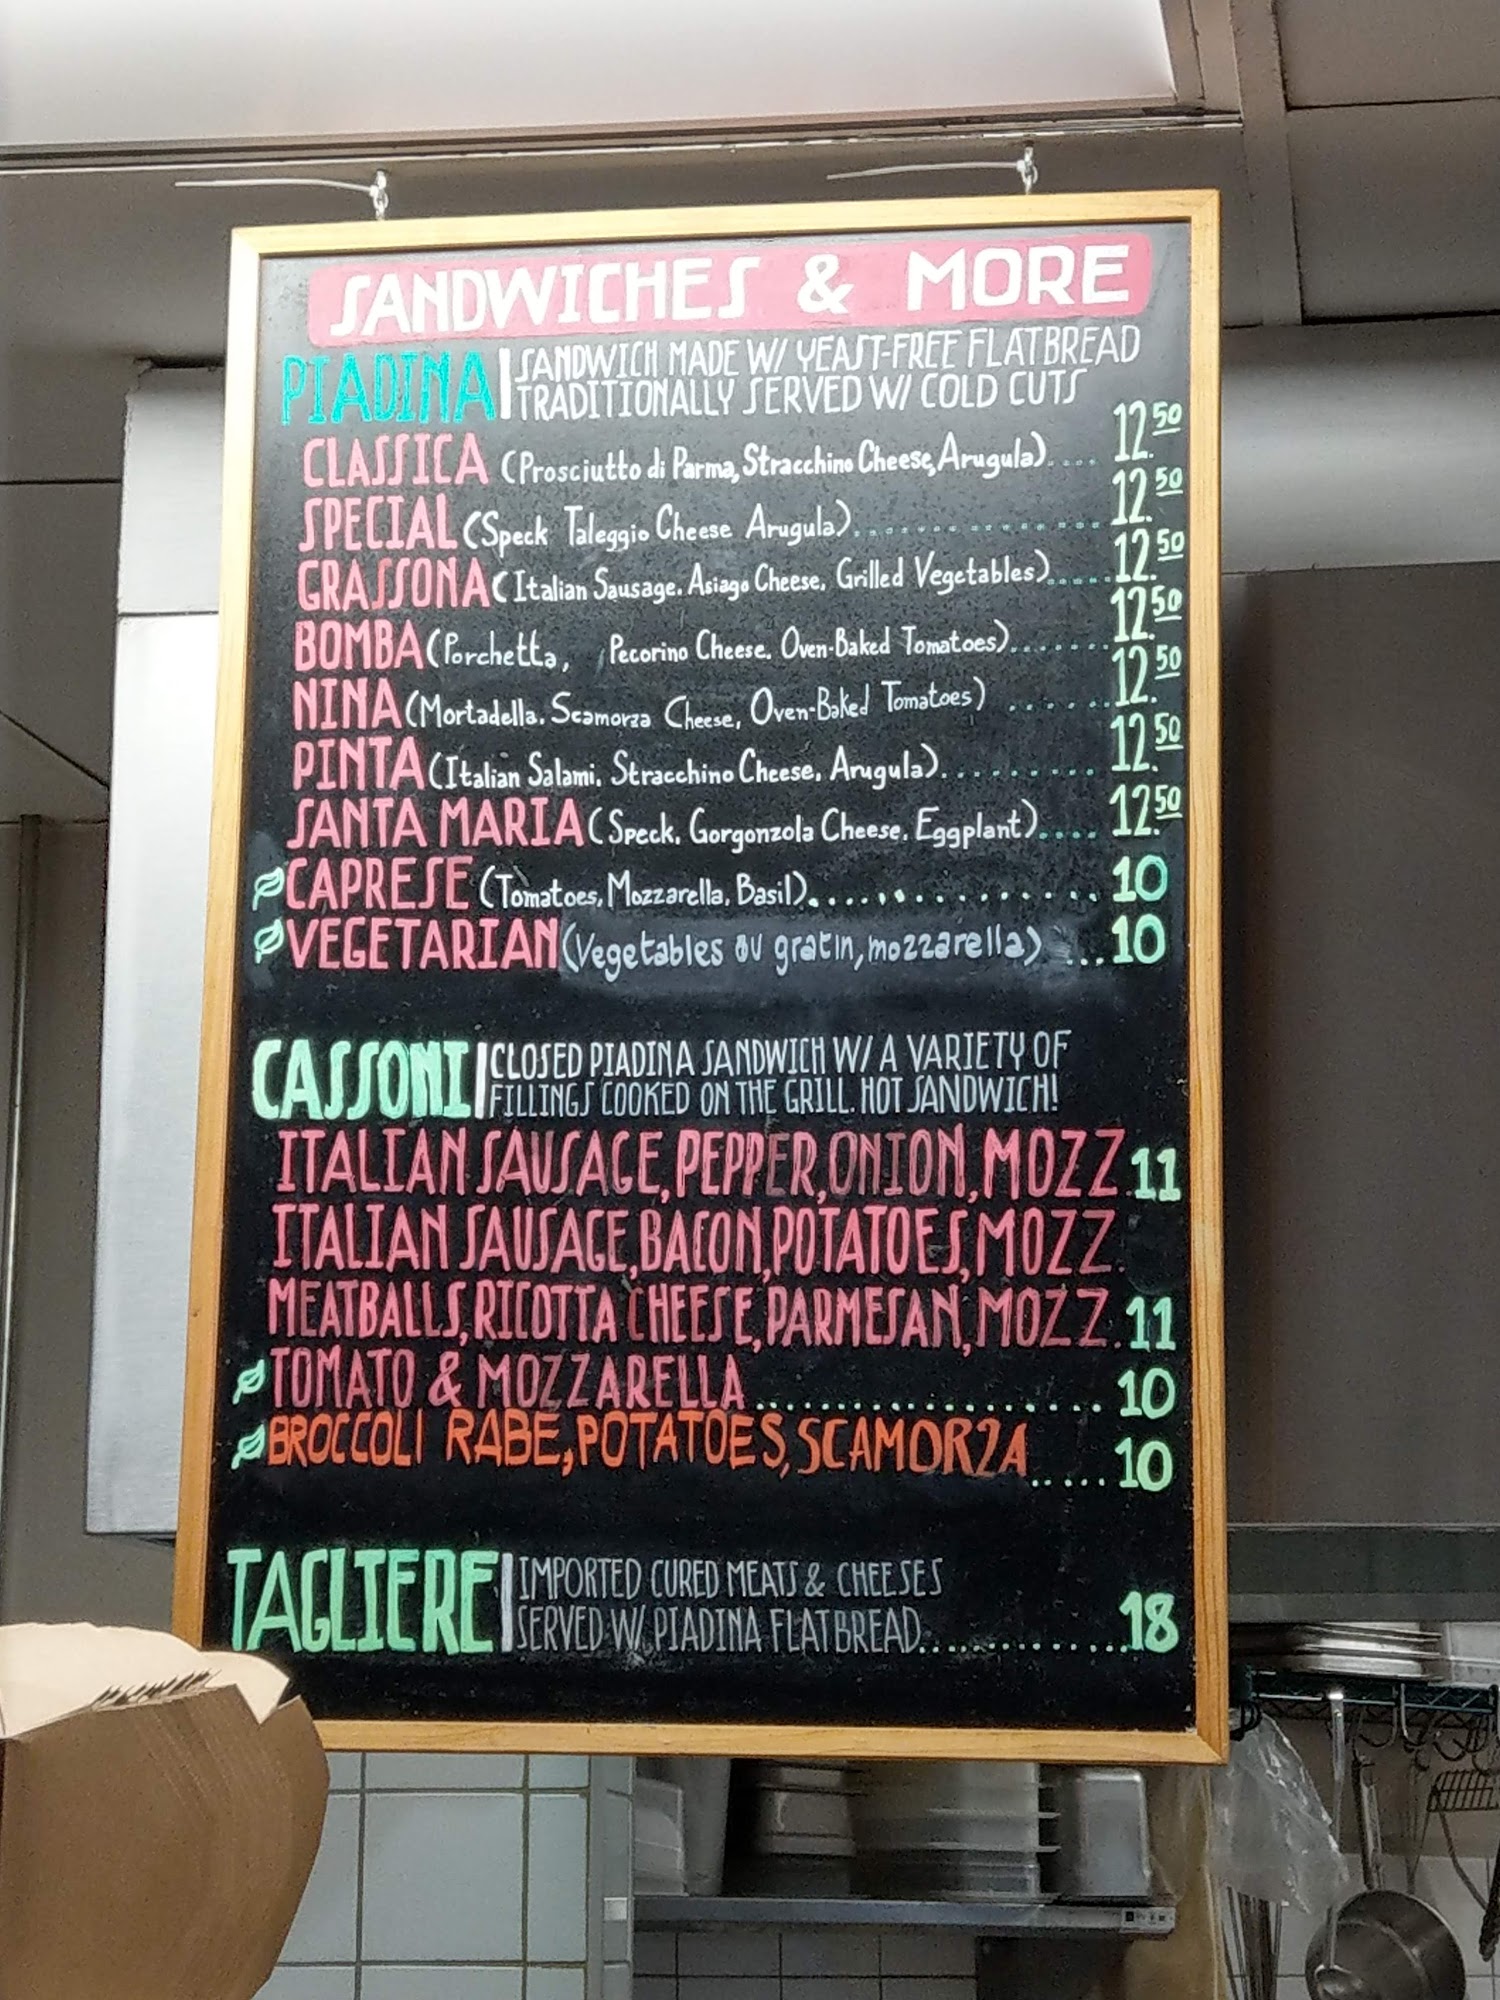 SANDWICHES & MORE
PIADINA | SANDWICH MADE W/ YEAST-FREE FLATBREAD
TRADITIONALLY SERVED W/ COLD CUTS
CLASSICA (Prosciutto di Parma, Stracchino Cheese, Arugula).... 12.50
SPECIAL (Speck Taleggio Cheese Arugula)............... 12.50
GRASSONA (Italian Sausage. Asiago Cheese. Grilled Vegetables)..... 12.50
BOMBA (Porchetta, Pecorino Cheese. Oven-Baked Tomatoes)....... 12.50
NINA (Mortadella. Scamorza Cheese, Oven-Baked Tomatoes) ...... 12.50
PINTA (Italian Salami. Stracchino Cheese. Arugula).......... 12.50
SANTA MARIA (Speck. Gorgonzola Cheese. Eggplant).... 12.50
CAPRESE (Tomatoes, Mozzarella, Basil)............... 10
VEGETARIAN (Vegetables au gratin, mozzarella) ... 10
CASSONI | CLOSED PIADINA SANDWICH W/ A VARIETY OF
FILLINGS COOKED ON THE GRILL. HOT SANDWICH!
ITALIAN SAUSAGE, PEPPER, ONION, MOZZ. 11
ITALIAN SAUSAGE, BACON, POTATOES, MOZZ.
MEATBALLS, RICOTTA CHEESE, PARMESAN, MOZZ. 11
TOMATO & MOZZARELLA.................... 10
BROCCOLI RABE, POTATOES, SCAMORZA ..... 10
TAGLIERE | IMPORTED CURED MEATS & CHEESES
SERVED W/ PIADINA FLATBREAD............. 18